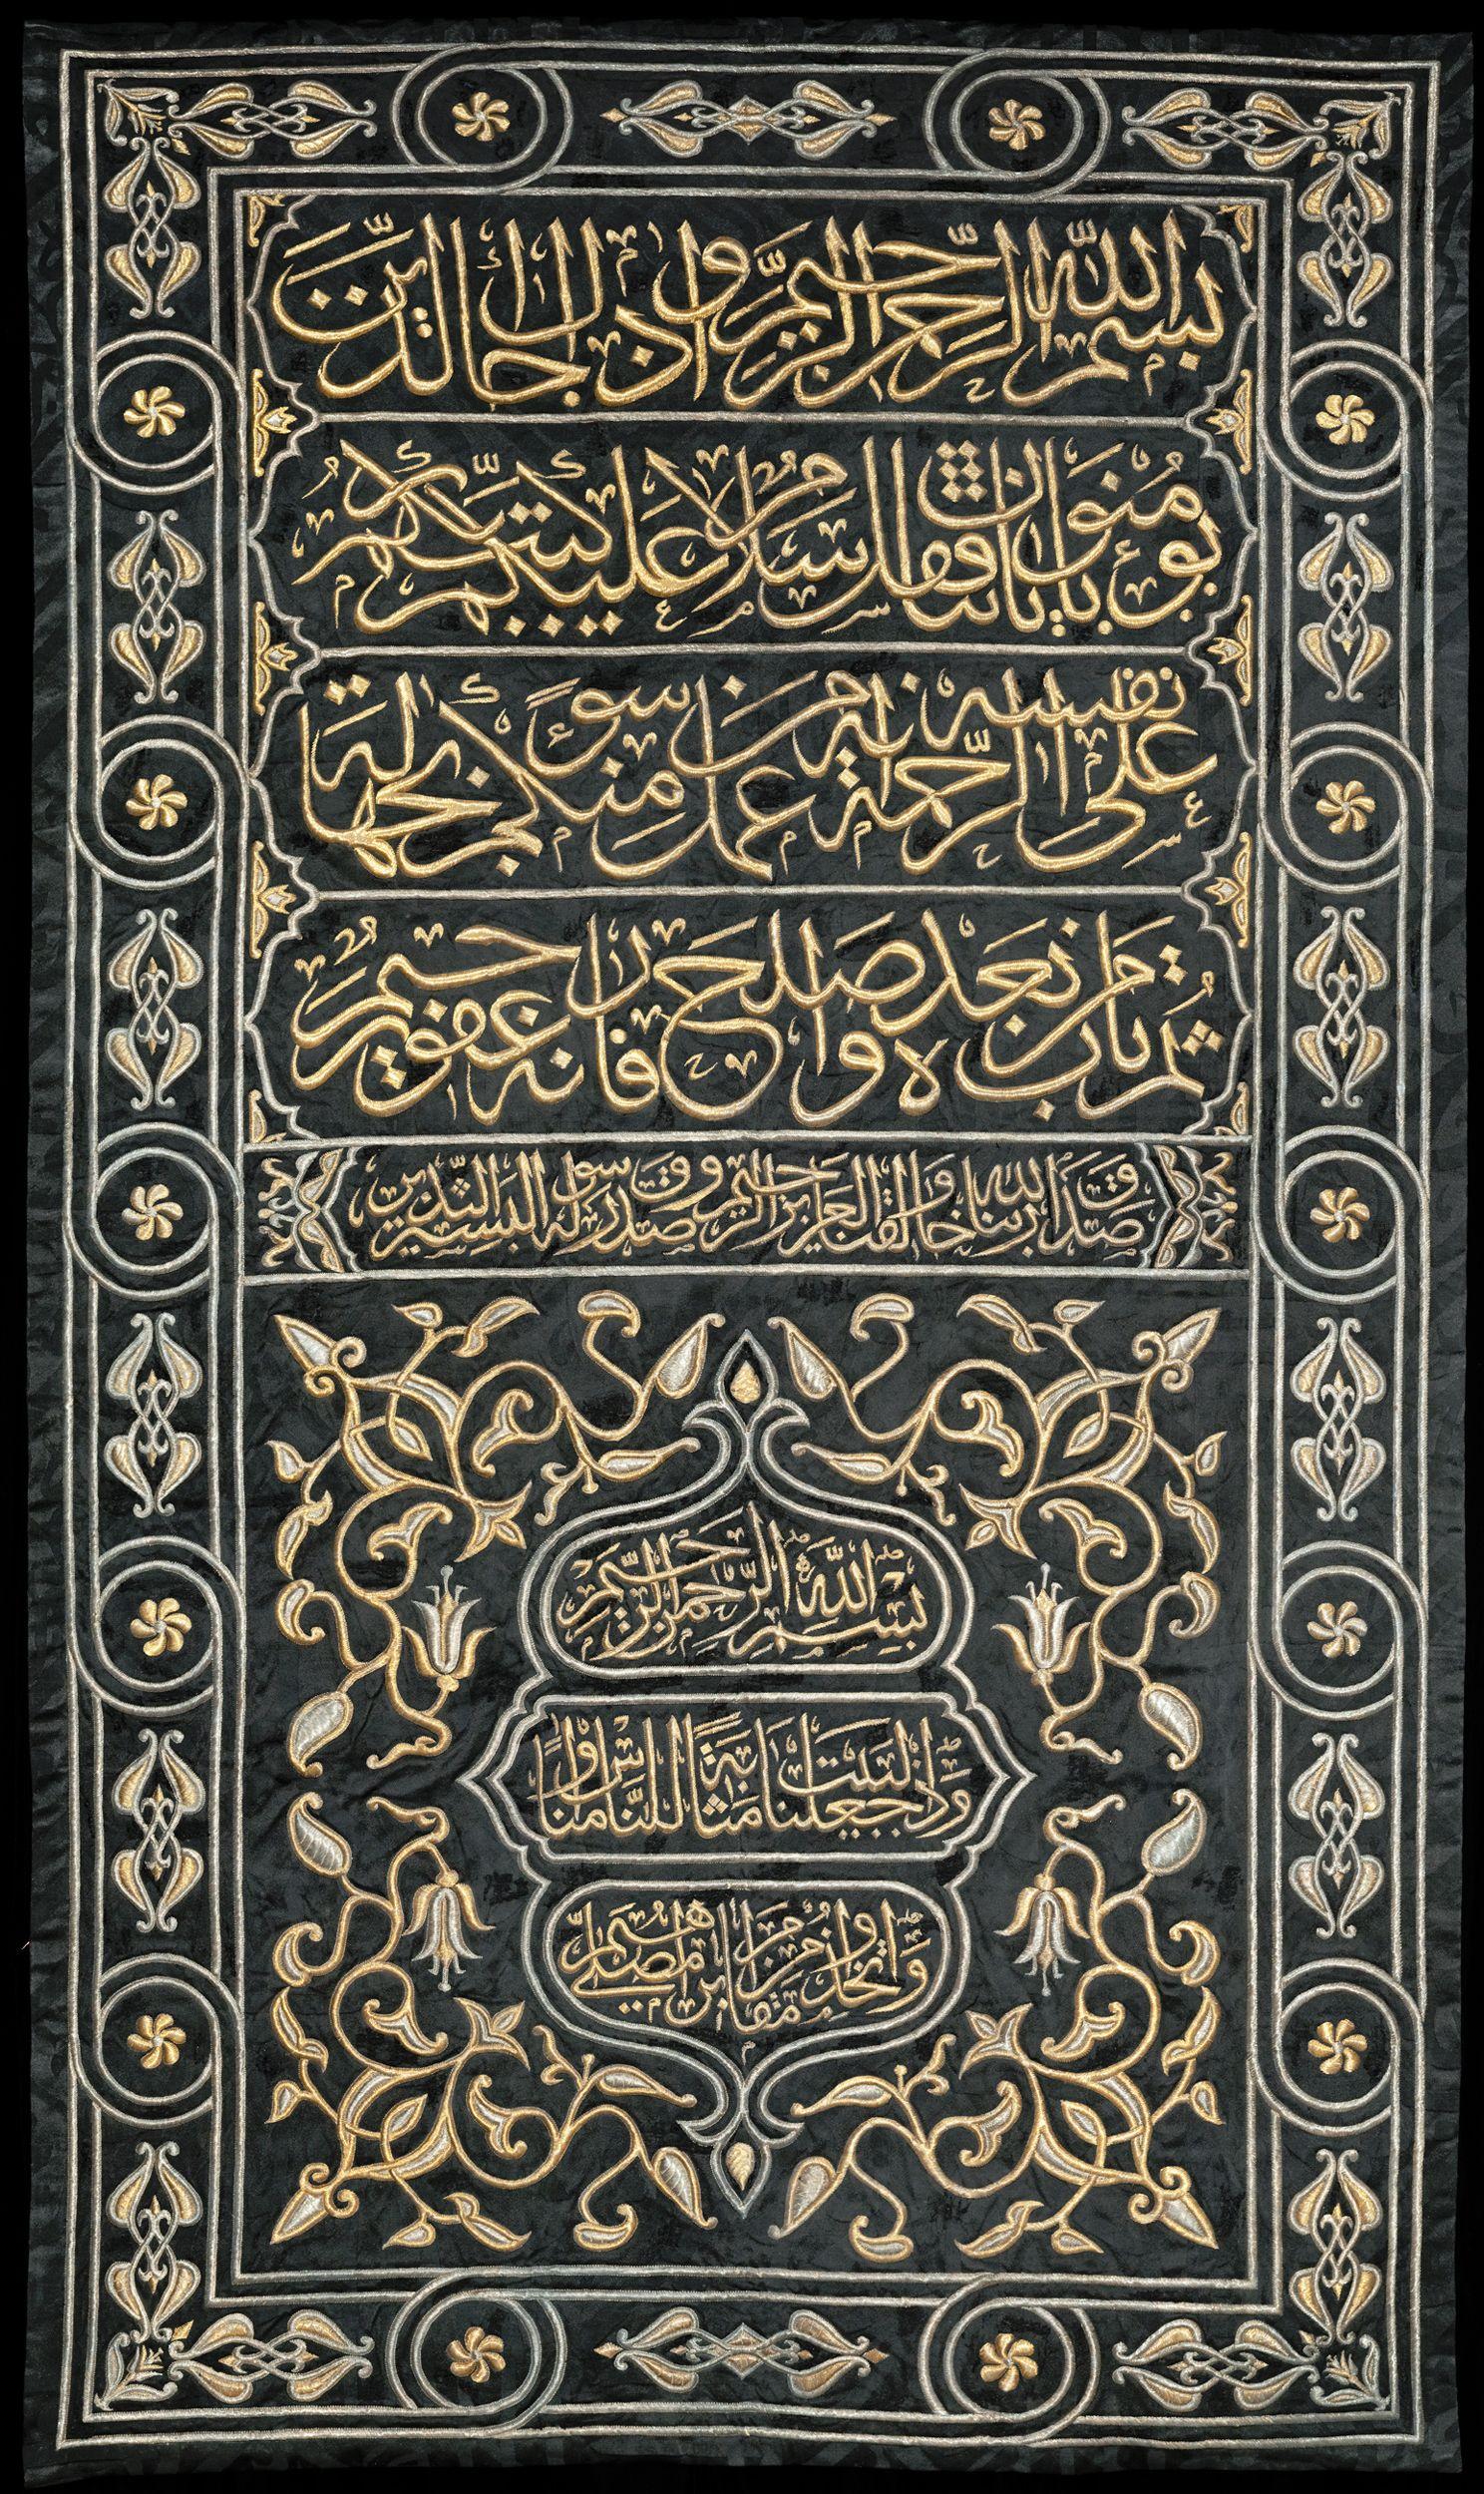 بسم الله الرحمن الرحيم وإذا جاءك الذين
يؤمنون بآياتنا فقل سلام عليكم كتب ربكم
على نفسه الرحمة أنه من عمل منكم سوءا بجهالة
ثم تاب من بعده وأصلح فأنه غفور رحيم
صدق الله ربنا خالقنا العزيز الرحيم وصدق رسوله البشير النذير
بِسْمِ اللَّهِ الرَّحْمٰنِ الرَّحِيمِ
وَإِذْ جَعَلْنَا الْبَيْتَ مَثَابَةً لِلنَّاسِ وَأَمْنًا
وَاتَّخِذُوا مِنْ مَقَامِ إِبْرَاهِيمَ مُصَلًّى